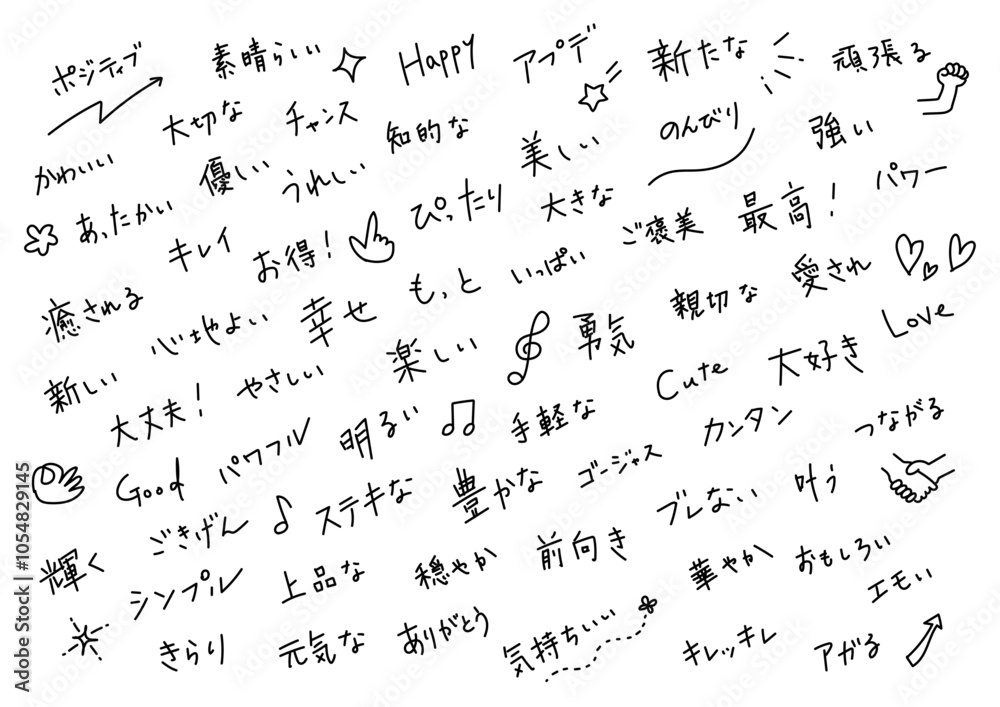 ポジティブ 素晴らしい Happy アプデ 新たな 頑張る
大切な チャンス 知的な 美しい のんびり 強い
かわいい 優しい うれしい ぴったり 大きな ご褒美 最高! パワー
あったかい キレイ お得! もっと いっぱい 親切な 愛され
癒される 心地よい 幸せ 楽しい 勇気 Cute 大好き Love
新しい 大丈夫! やさしい 明るい 手軽な カンタン つながる
Good パワフル ステキな 豊かな ゴージャス ブレない 叶う
輝く ごきげん 上品な 穏やか 前向き 華やか おもしろい
シンプル 元気な ありがとう 気持ちいい キレッキレ エモい
きらり アガる
Adobe Stock | #1054829145